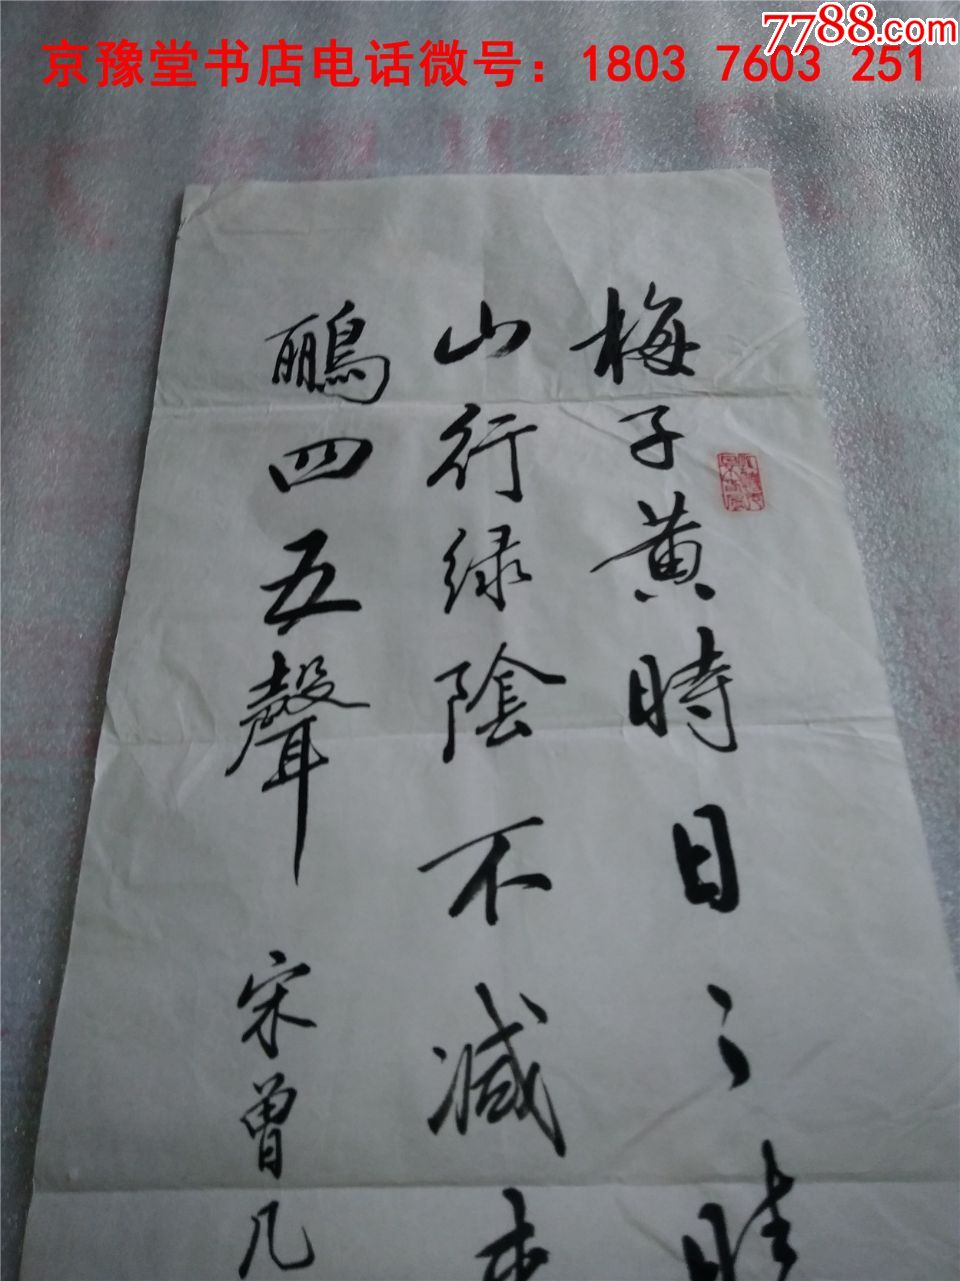 7788.com
京豫堂书店电话微号：1803 7603 251
梅子黄時日〻晴
山行绿陰不減来
鸝四五聲 宋曾几